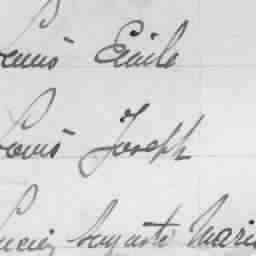 Louis Emile
Louis Joseph
Lucien Auguste Marie